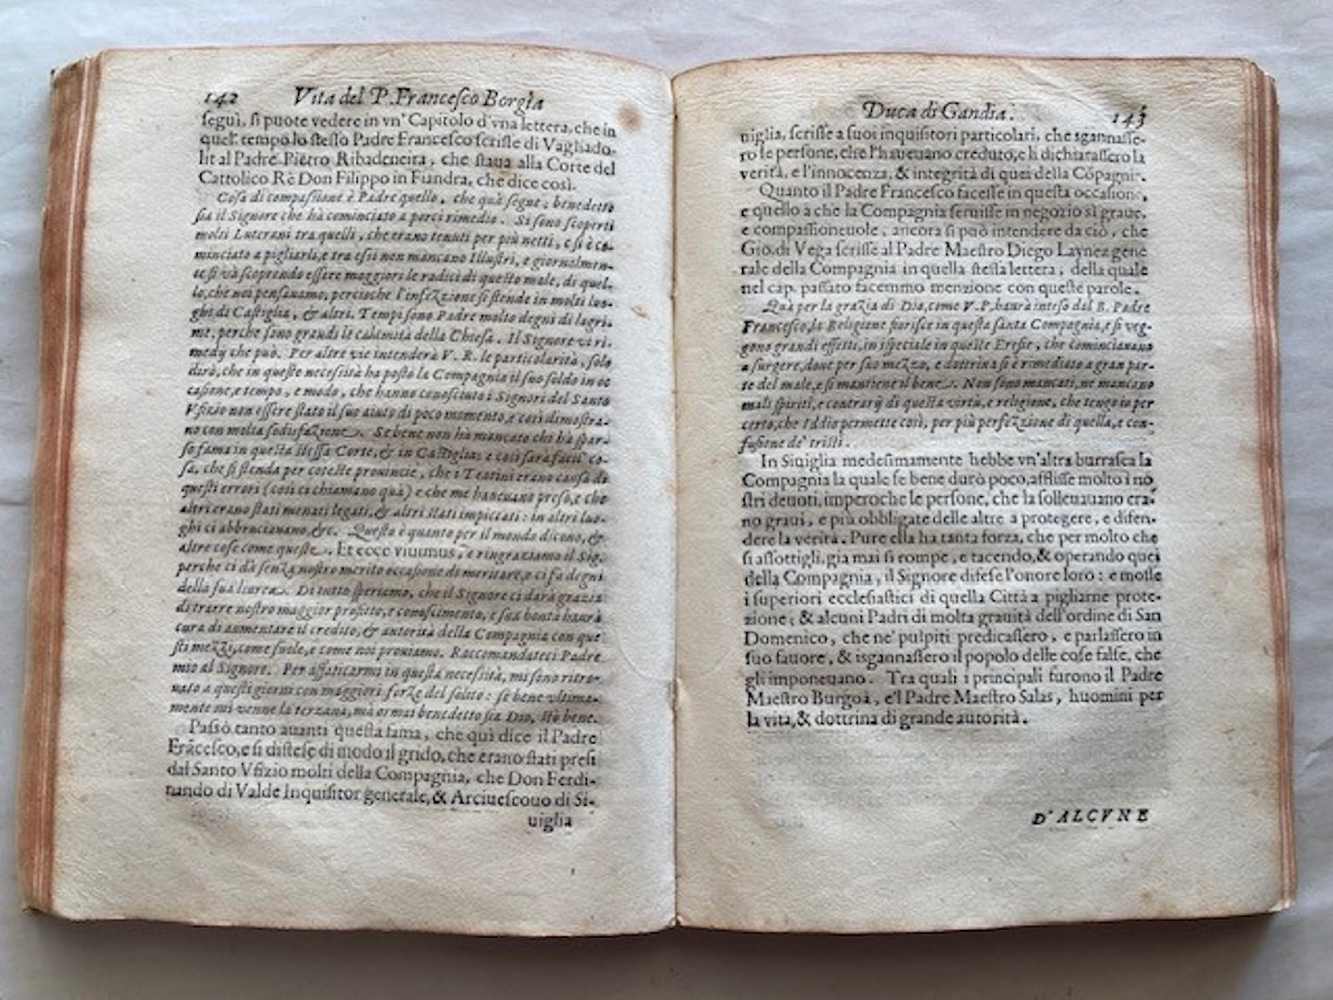 142 Vita del P. Francesco Borgia
seguì, si puote vedere in vn' Capitolo d'vna lettera, che in
quel' tempo lo stesso Padre Francesco scrisse di Vagliado-
lit al Padre Pietro Ribadeneira, che staua alla Corte del
Cattolico Rè Don Filippo in Fiandra, che dice così.
Cosa di compassione è Padre quello, che quà segue; benedetto
sia il Signore che hà cominciato a porci rimedio. Si sono scoperti
molti Luterani tra quelli, che erano tenuti per più netti, e si è co-
minciato a pigliarli, e tra essi non mancano Illustri, e giornalmen-
te si và scoprendo essere maggiori le radici di questo male, di quel-
lo, che noi pensauamo, percioche l'infezzione si stende in molti luo-
ghi di Castiglia, & altri. Tempi sono Padre molto degni di lagri-
me, perche sono grandi le calamità della Chiesa. Il Signore vi ri-
medij che può. Per altre vie intenderà V. R. le particolarità, solo
dirò, che in queste necessità ha posto la Compagnia il suo soldo in oc
casione, e tempo, e modo, che hanno conosciuto i Signori del Santo
Vfizio non essere stato il suo aiuto di poco momento, e così dimostra-
no con molta sodisfazione. Se bene non hà mancato chi hà spar-
so fama in questa stessa Corte, & in Castiglia, e così sarà facil' co-
sa, che si stenda per coteste prouincie, che i Teatini erano causa di
questi errori (così ci chiamano quà) e che me haueuano preso, e che
altri erano stati menati legati, & altri stati impiccati: in altri luo-
ghi ci abbruciauano, &c. Questo è quanto per il mondo dicono, &
altre cose come queste. Et ecce viuimus, e ringraziamo il Sig.
perche ci dà senza nostro merito occasione di meritare, e ci fa degni
della sua liurea. Di tutto speriamo, che il Signore ci darà grazia
di trarre nostro maggior profitto, e conoscimento, e sua bontà haurà
cura di aumentare il credito, & autorità della Compagnia con que
sti mezzi, come suole, e come noi prouiamo. Raccomandateci Padre
mio al Signore. Per affaticarmi in questa necessità, mi sono ritro-
uato a questi giorni con maggiori forze del solito: se bene vltima-
mente mi venne la terzana, mà ormai benedetto sia Dio, stò bene.
Passò tanto auanti questa fama, che quì dice il Padre
Frãcesco, e si distese di modo il grido, che erano stati presi
dal Santo Vfizio molti della Compagnia, che Don Ferdi-
nando di Valde Inquisitor generale, & Arciuescouo di Si-
uiglia
Duca di Gandia. 143
uiglia, scrisse a suoi inquisitori particolari, che sgannasse-
ro le persone, che l'haueuano creduto, e li dichiarassero la
verità, e l'innocenza, & integrità di quei della Cõpagnia.
Quanto il Padre Francesco facesse in questa occasione,
e quello a che la Compagnia seruisse in negozio sì graue,
e compassioneuole, ancora si può intendere da ciò, che
Gio. di Vega scrisse al Padre Maestro Diego Laynez gene
rale della Compagnia in quella stessa lettera, della quale
nel cap. passato facemmo menzione con queste parole.
Quà per la grazia di Dio, come V. P. haurà inteso dal B. Padre
Francesco, la Religione fiorisce in questa santa Compagnia, e si veg-
gono grandi effetti, in ispeciale in queste Eresie, che cominciauano
a surgere, doue per suo mezzo, e dottrina si è rimediato a gran par-
te del male, e si mantiene il bene. Non sono mancati, ne mancano
mali spiriti, e contrarij di questa virtù, e religione, che tengo io per
certo, che Iddio permette così, per più perfezzione di quella, e con-
fusione de' tristi.
In Siuiglia medesimamente hebbe vn'altra burrasca la
Compagnia la quale se bene durò poco, afflisse molto i no
stri deuoti, imperoche le persone, che la solleuauano era-
no graui, e più obbligate delle altre a protegere, e difen-
dere la verità. Pure ella ha tanta forza, che per molto che
si assottigli, gia mai si rompe, e tacendo, & operando quei
della Compagnia, il Signore difese l'onore loro: e mosse
i superiori ecclesiastici di quella Città a pigliarne prote-
zione; & alcuni Padri di molta grauità dell'ordine di San
Domenico, che ne' pulpiti predicassero, e parlassero in
suo fauore, & isgannassero il popolo delle cose false, che
gli imponeuano. Tra quali i principali furono il Padre
Maestro Burgoà, e'l Padre Maestro Salas, huomini per
la vita, & dottrina di grande autorità.
D'ALCVNE